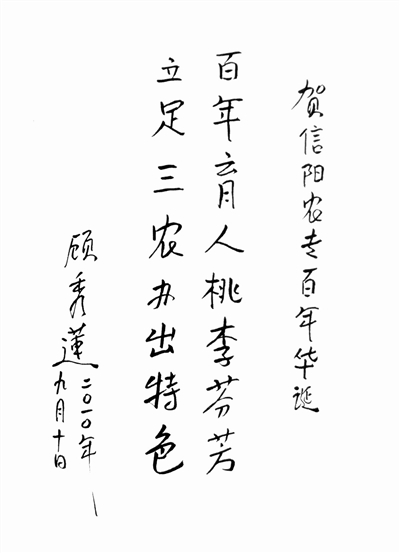 贺信阳农专百年华诞
百年育人桃李芬芳
立足三农办出特色
顾秀莲
二〇一〇年
九月十日